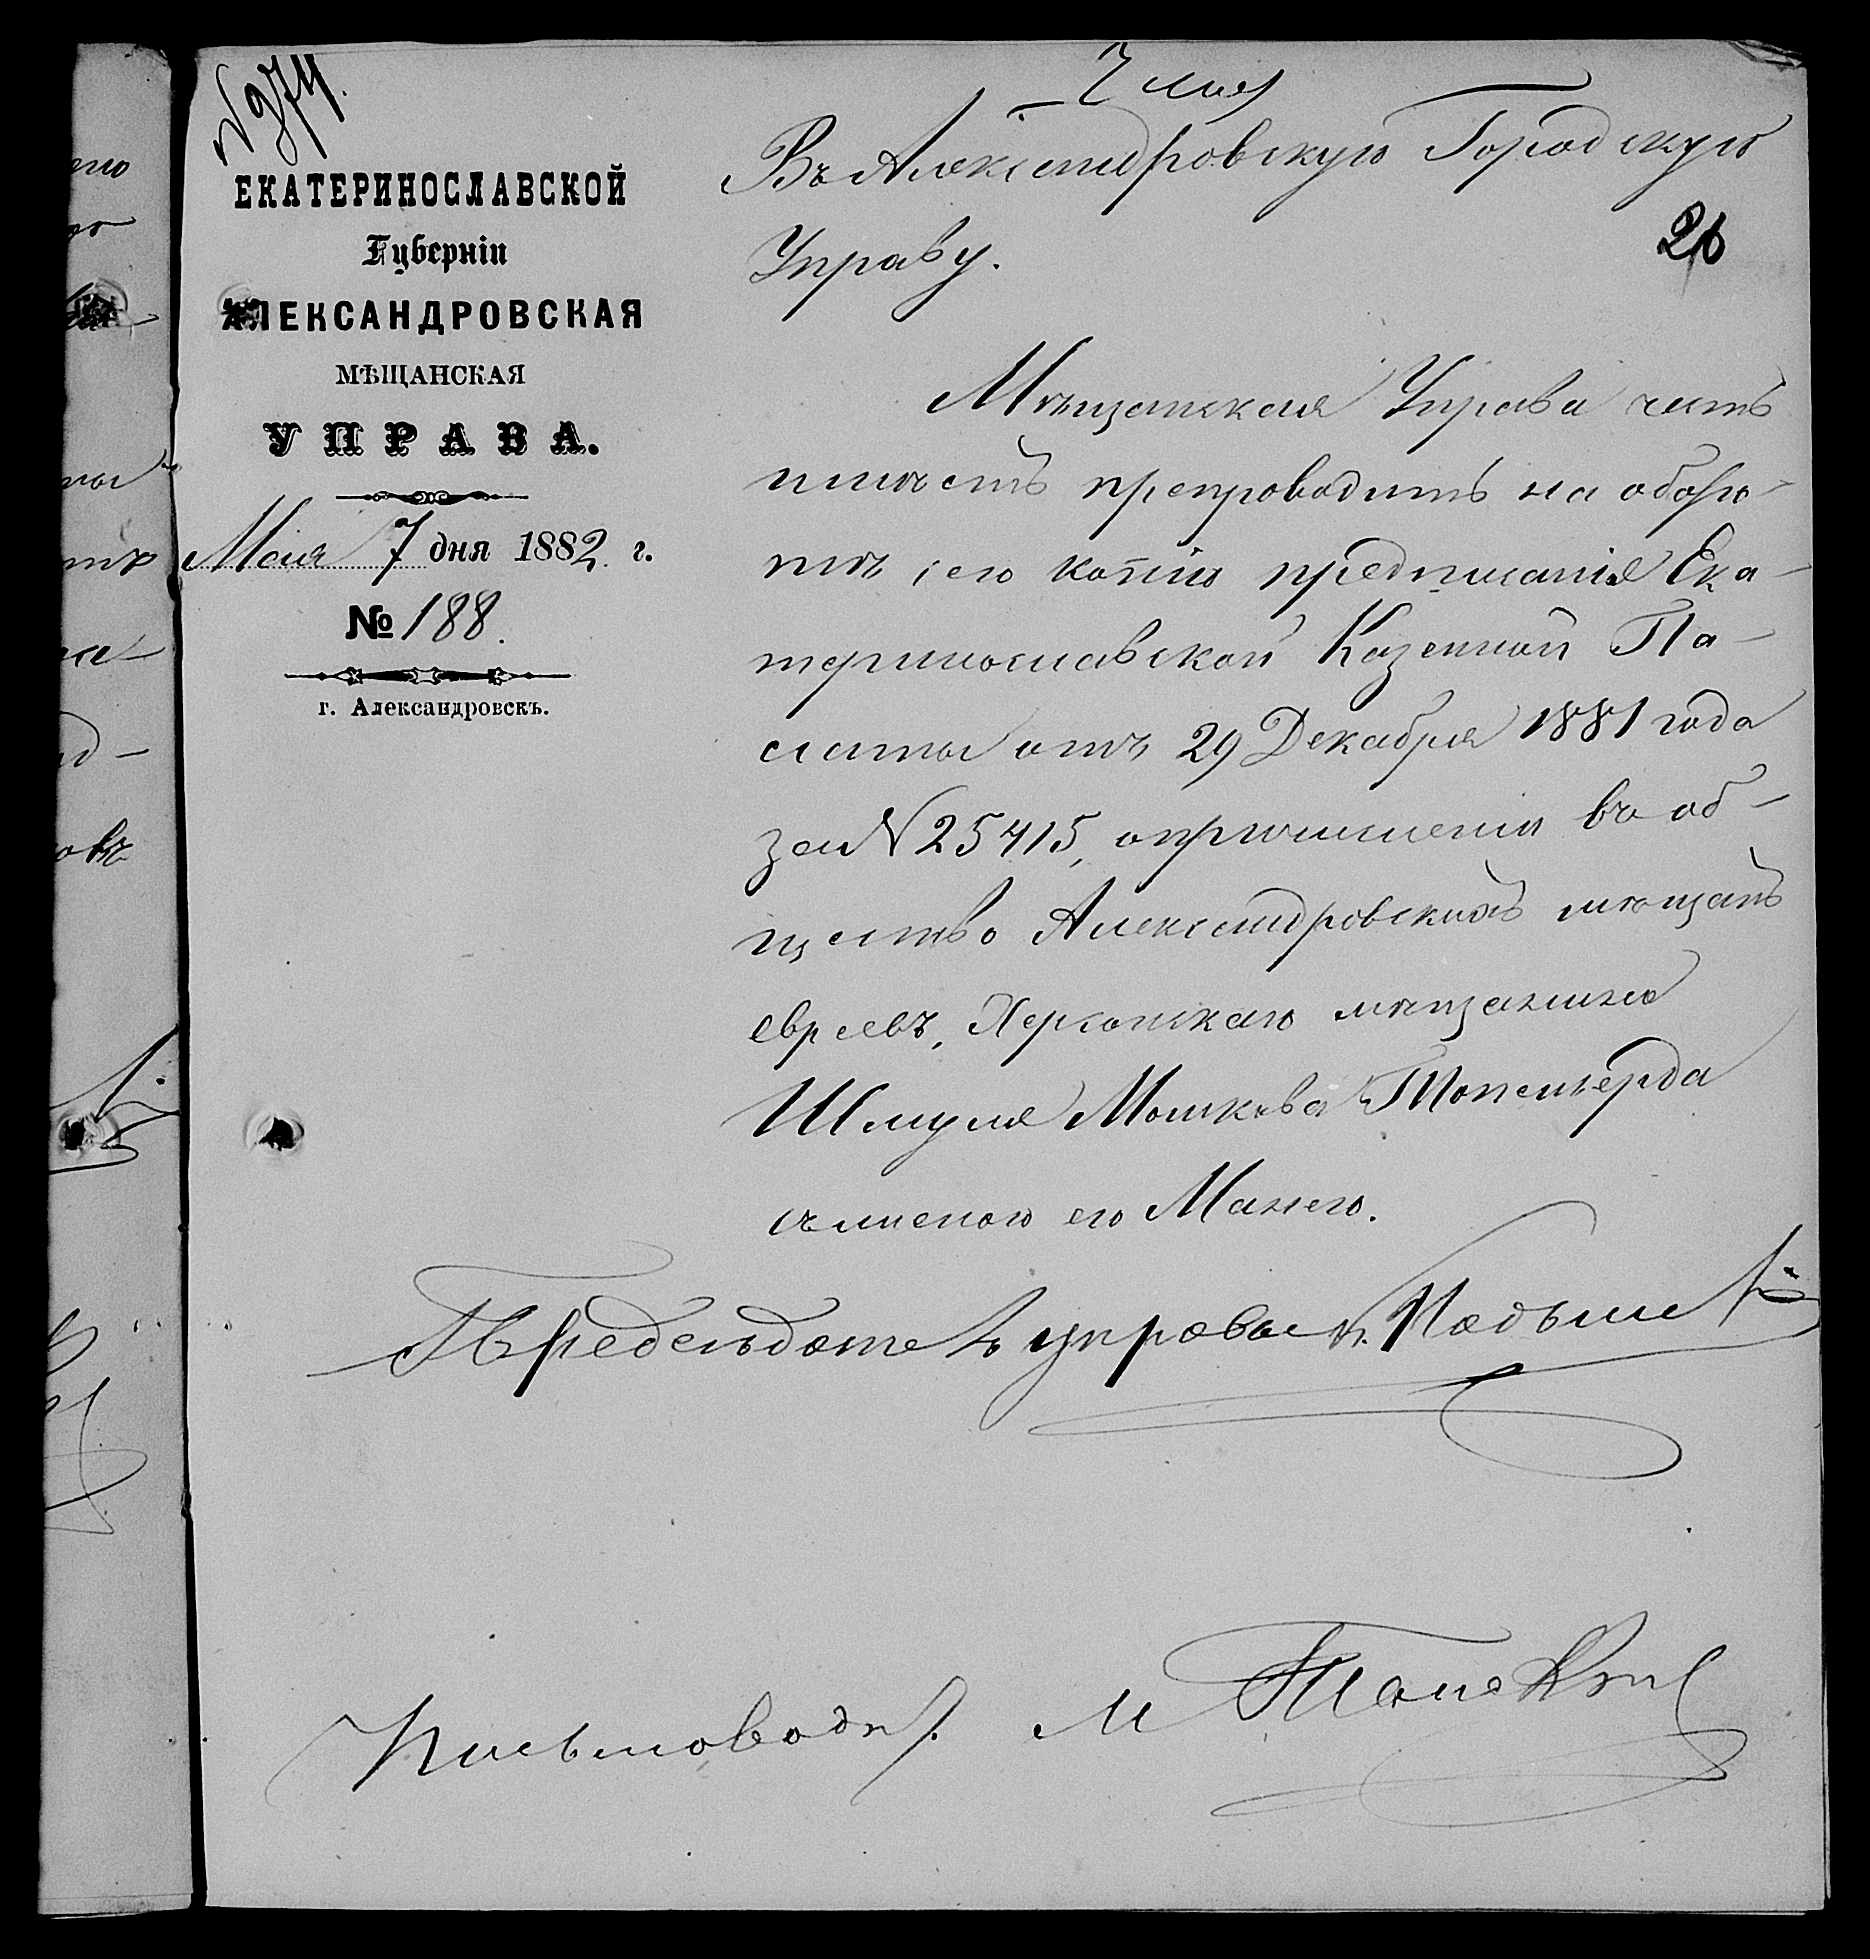 № 974.
ЕКАТЕРИНОСЛАВСКОЙ
Губерніи
АЛЕКСАНДРОВСКАЯ
МѢЩАНСКАЯ
УПРАВА.
Мая 7 дня 1882 г.
№ 188.
г. Александровскъ.
7 мая
Въ Александровскую Городскую
Управу.
26
Мѣщанская Управа честь
имѣетъ препроводить на оборо-
тѣ сего копію предписанія Ека-
теринославской Казенной Па-
латы отъ 29 Декабря 1881 года
за № 25415, о причисленіи въ об-
щество Александровскихъ мѣщанъ
евреевъ, Херсонскаго мѣщанина
Шмуля Мошкова
съ женою его Манею.
Предсѣдатель управы
Письмоводит. М